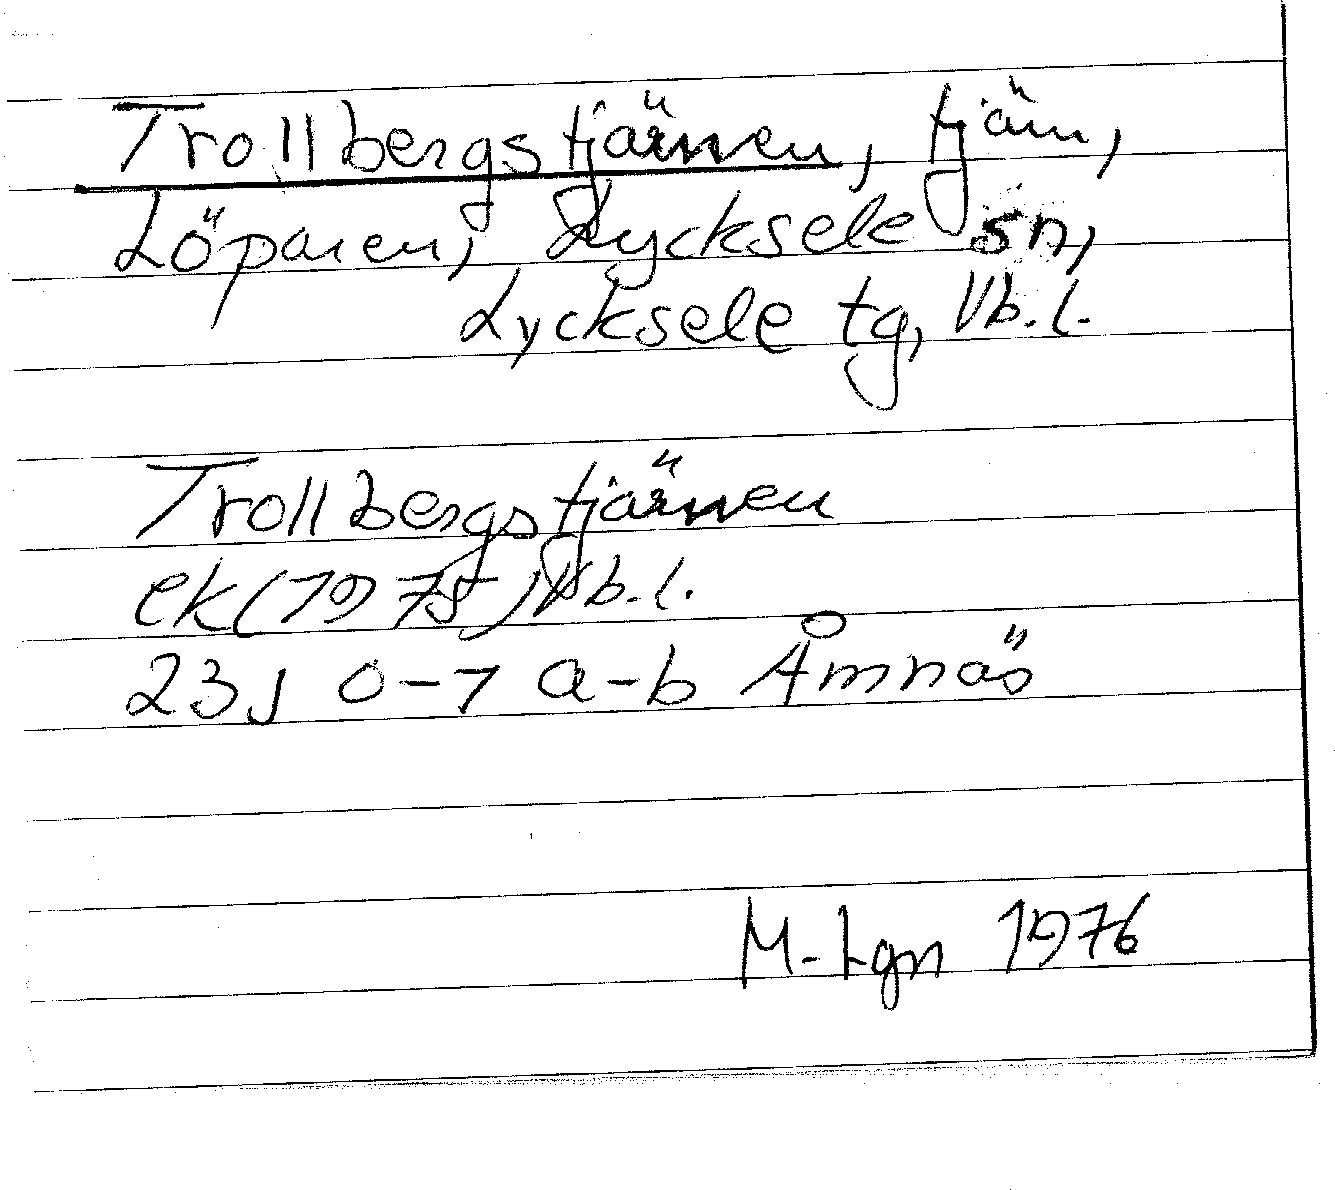 Trollbergstjärnen, tjärn,
Löparen, Lycksele sn,
Lycksele tg, Vb.l.
Trollbergstjärnen
ek (1975) Vb.l.
23J 0-1 a-b Åmnäs
M-Lgn 1976